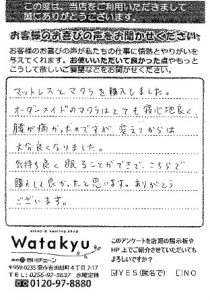 この度は、当店をご利用いただきまして
誠にありがとうございます。
お客様のお喜びの声をお聞かせください。
お客様のお喜びの声が私たちの仕事に情熱とやりがいを
与えてくれます。お使いいただいて良かった点やもっと
こうして欲しいご要望などをお聞かせください。
マットレスとマクラを購入しました。
オーダーメイドのマクラはとても寝心地良く、
腰が痛かったのですが、変えてからは
大分良くなりました。
気持ち良く眠ることができて、こちらで
購入して良かったと思います。ありがとう
ございます。
sleep & healing shop
Watakyu
〒959-0235 燕市吉田旭町4丁目2-17
TEL:0256-92-5637 水曜定休
0120-97-8880
このアンケートを店頭の掲示板や
HP上でご紹介させていただいても
よろしいですか？
☑YES(匿名で) □NO